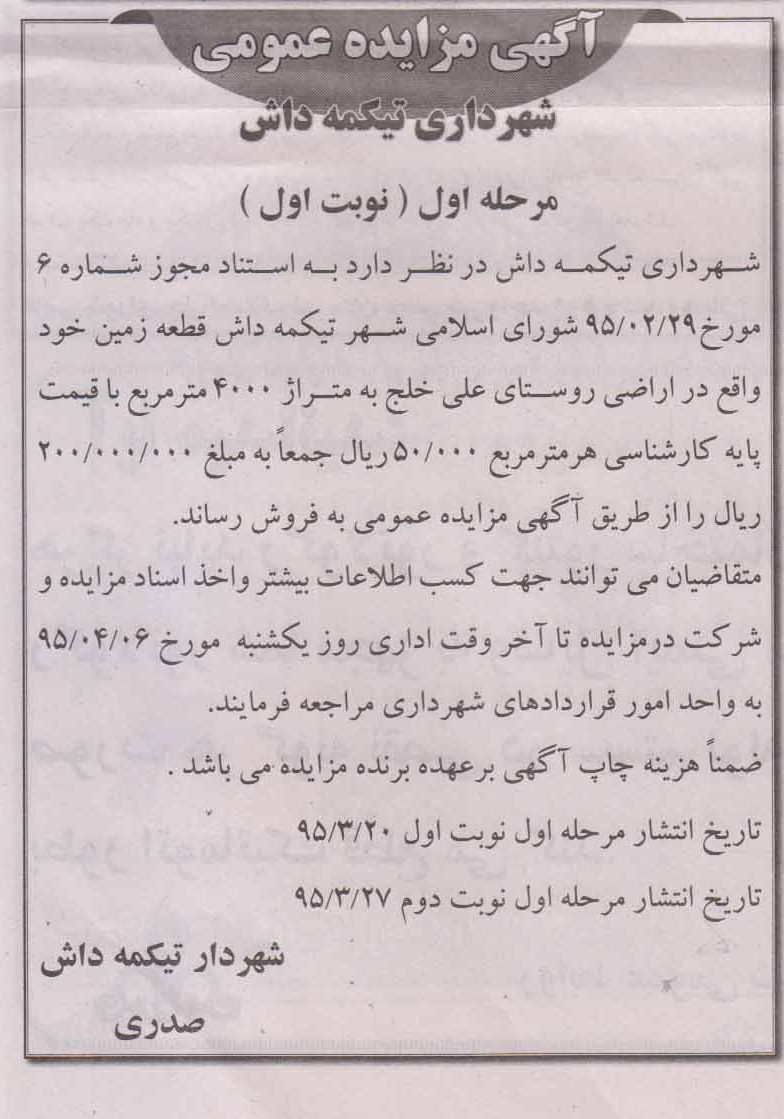 آگهی مزایده عمومی
شهرداری تیکمه داش
مرحله اول ( نوبت اول )
شهرداری تیکمه داش در نظر دارد به استناد مجوز شماره ۶
مورخ ۹۵/۰۲/۲۹ شورای اسلامی شهر تیکمه داش قطعه زمین خود
واقع در اراضی روستای علی خلج به متراژ ۴۰۰۰ مترمربع با قیمت
پایه کارشناسی هرمترمربع ۵۰/۰۰۰ ریال جمعاً به مبلغ ۲۰۰/۰۰۰/۰۰۰
ریال را از طریق آگهی مزایده عمومی به فروش رساند.
متقاضیان می توانند جهت کسب اطلاعات بیشتر واخذ اسناد مزایده و
شرکت درمزایده تا آخر وقت اداری روز یکشنبه مورخ ۹۵/۰۴/۰۶
به واحد امور قراردادهای شهرداری مراجعه فرمایند.
ضمناً هزینه چاپ آگهی برعهده برنده مزایده می باشد .
تاریخ انتشار مرحله اول نوبت اول ۹۵/۳/۲۰
تاریخ انتشار مرحله اول نوبت دوم ۹۵/۳/۲۷
شهردار تیکمه داش
صدری